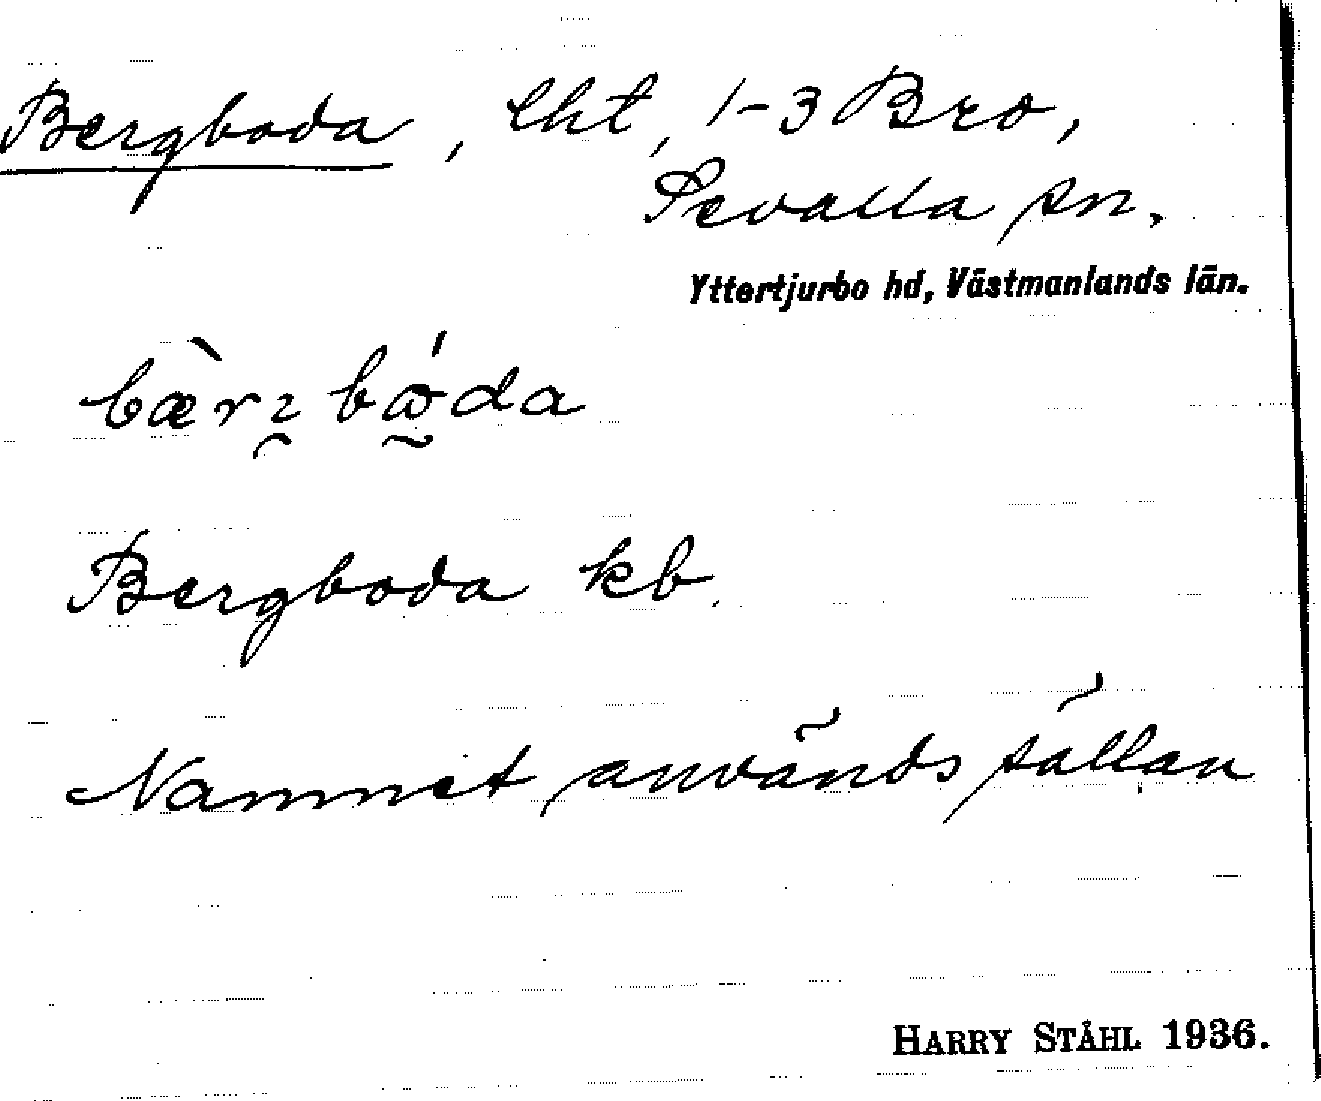 Bergboda, lht, 1-3 Bro,
Sevalla sn.
Yttertjurbo hd, Västmanlands län.
bæ̀rꝛbǿda
Bergboda kb.
Namnet används sällan
HARRY STÅHL 1936.